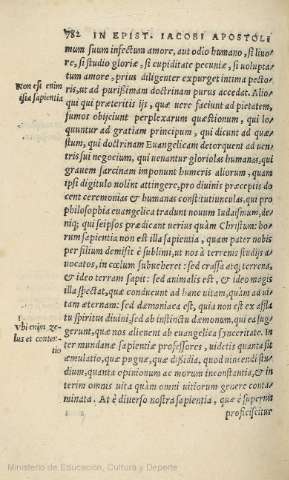 782 IN EPIST. IACOBI APOSTOLI
mum suum infectum amore, aut odio humano, si liuo-
re, si studio gloriæ, si cupiditate pecuniæ, si volupta-
tum amore, prius diligenter expurget intima pecto-
Non est enim
ista sapientia
ris, ut ad purissimam doctrinam purus accedat. Alio
qui qui præteritis ijs, quæ uere faciunt ad pietatem,
fumos obijciunt perplexarum quæstionum, qui lo
quuntur ad gratiam principum, qui dicunt ad quæ
stum, qui doctrinam Euangelicam detorquent ad uen
tris sui negocium, qui uenantur gloriolas humanas, qui
grauem sarcinam imponunt humeris aliorum, quam
ipsi digitulo nolint attingere, pro diuinis præceptis do
cent ceremonias & humanas constitutiunculas, qui pro
philosophia euangelica tradunt nouum Iudaismum, de
niq; qui seipsos prædicant uerius quàm Christum: ho-
rum sapientia non est illa sapientia, quam pater nobis
per filium demisit è sublimi, ut nos à terrenis studijs a-
uocatos, in cœlum subueheret: sed crassa atq; terrena,
& ideo terram sapit: sed animalis est, & ideo magis
illa spectat, quæ conducunt ad hanc uitam, quàm ad ui-
tam æternam: sed dæmoniaca est, quia non est ex affla
tu spiritus diuini, sed ab instinctu dæmonum, qui ea sug
Vbi enim ze-
lus et conten-
tio
gerunt, quæ nos alienent ab euangelica synceritate. In
ter mundanæ sapientiæ professores, uidetis quanta sit
æmulatio, quæ pugnæ, quæ dissidia, quod uincendi stu
dium, quanta opinionum ac morum inconstantia, & in
terim omnis uita quàm omni uitiorum genere conta-
minata. At è diuerso nostra sapientia, quæ è supernis
proficiscitur
Ministerio de Educación, Cultura y Deporte